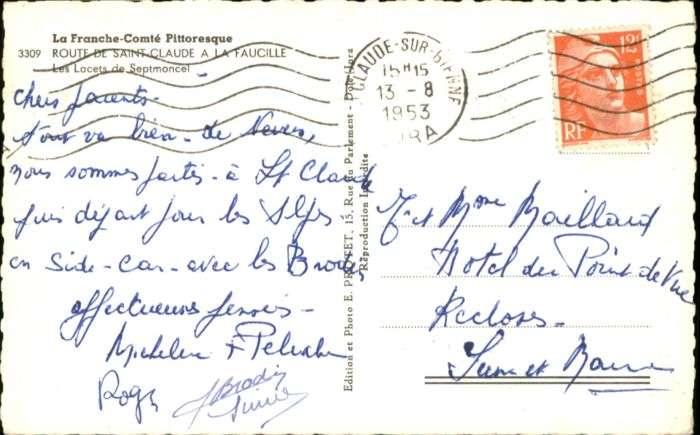 La Franche-Comté Pittoresque
3309 ROUTE DE SAINT-CLAUDE A LA FAUCILLE
Les Lacets de Septmoncel
Chers parents-
tout va bien - de Nevers,
nous sommes partis - à St Claude
puis départ pour les Alpes-
en Side-Car - avec les
affectueuses pensées -
Micheline
Roger
Edition et Photo E. PROTET, 15, Rue du Parlement - Dole-Jura
Reproduction Interdite
CLAUDE-SUR-BIENNE
15H15
13 - 8
1953
JURA
12F
RF
M. et Mme Maillard
Hotel du Point de Vue
Recloses.
Seine et Marne